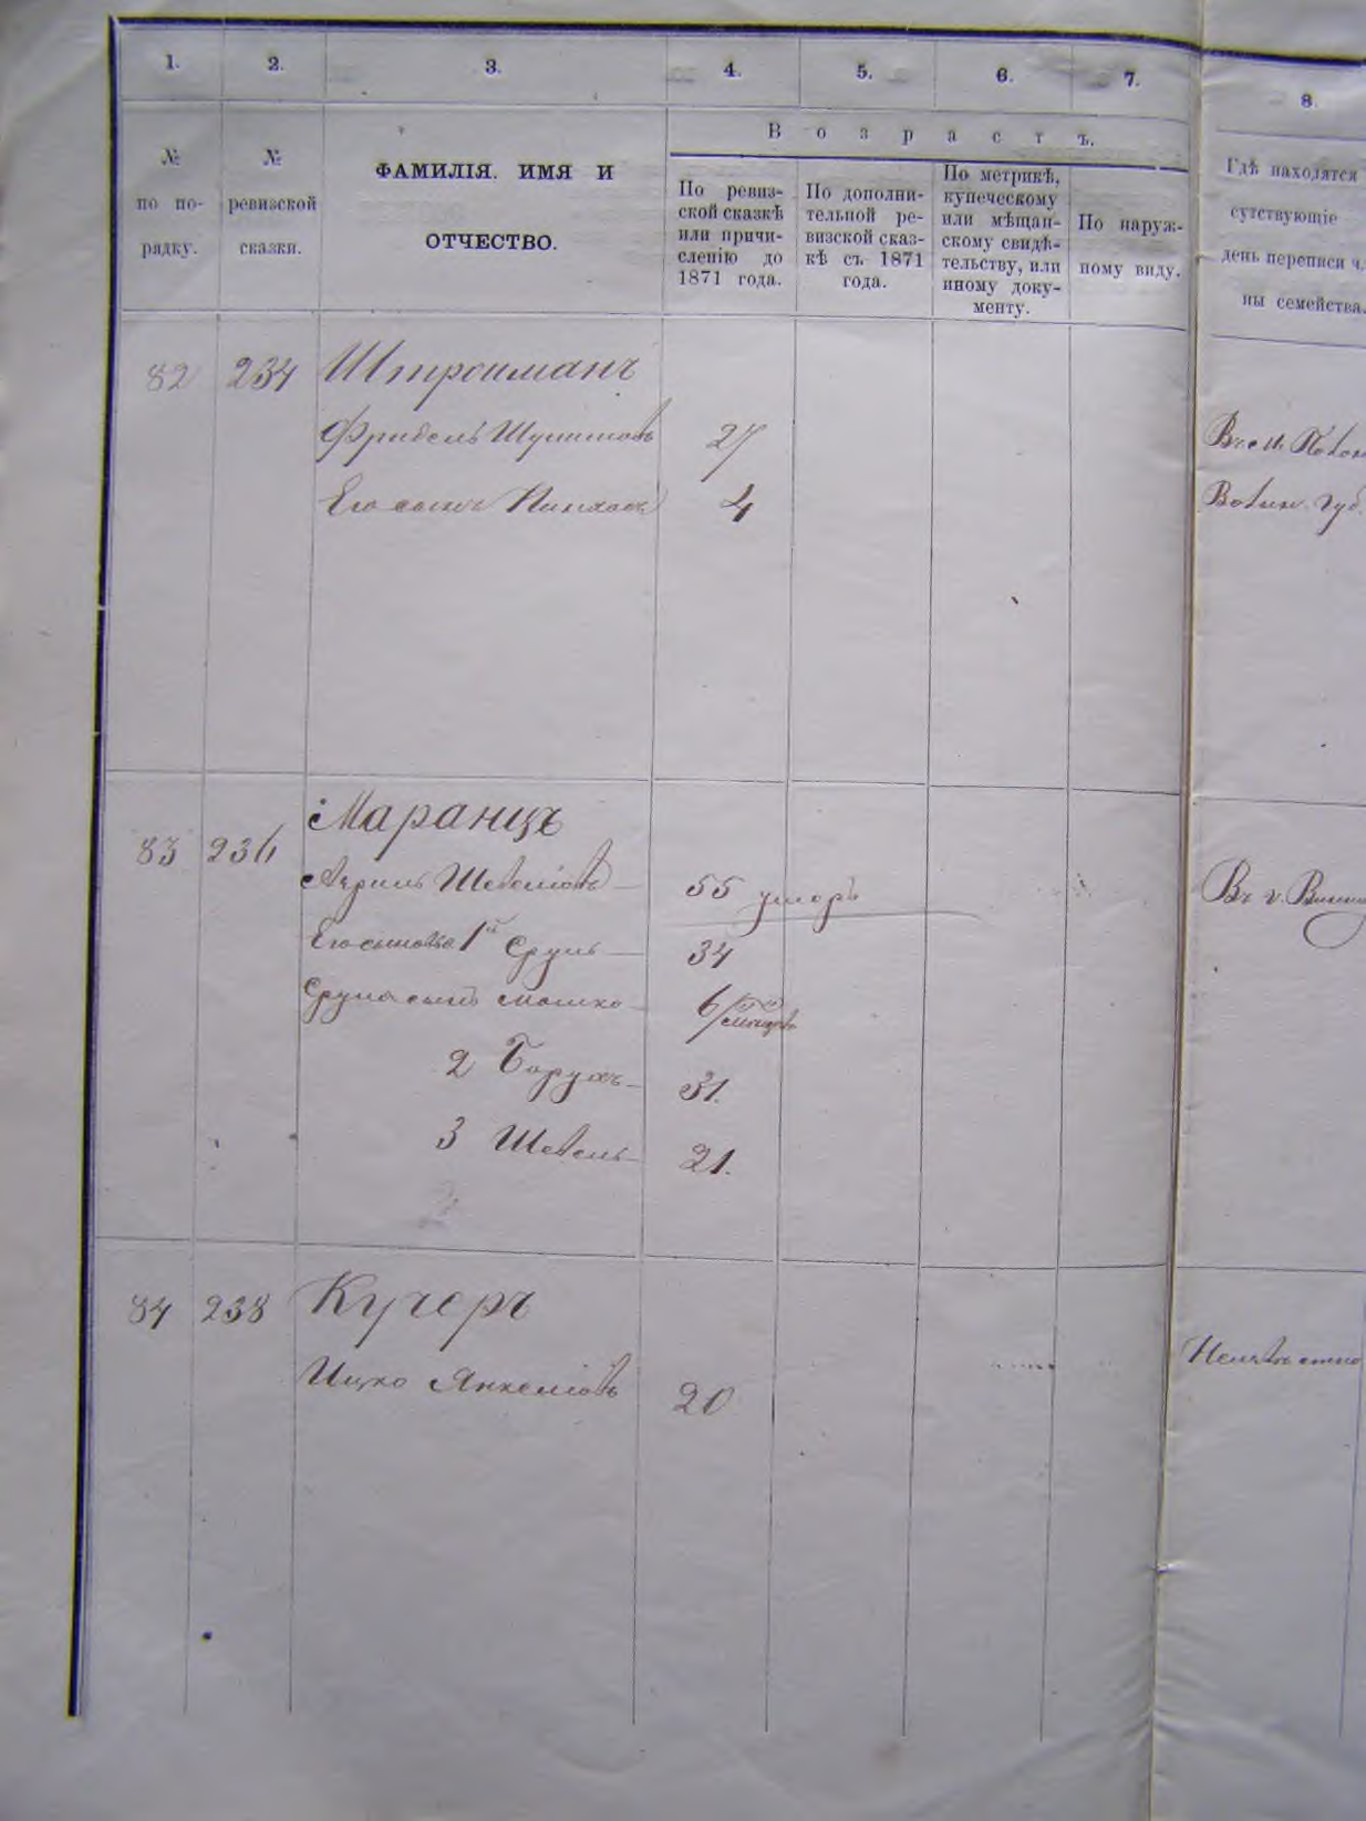 1. 2. 3. 4. 5. 6. 7. 8.
№ по по-рядку.
№ ревизской сказки.
ФАМИЛІЯ. ИМЯ И
ОТЧЕСТВО.
Возрастъ.
По ревиз-
ской сказкѣ
или причи-
сленію до
1871 года.
По дополни-
тельной ре-
визской сказ-
кѣ съ 1871
года.
По метрикѣ,
купеческому
или мѣщан-
скому свидѣ-
тельству, или
иному доку-
менту.
По наруж-
ному виду.
Гдѣ находятся
сутствующіе
день переписи ч
ны семейства
82 234 Штройманъ
Фридель 27
Его сынъ Пинхасъ 4 Волын. губ.
83 236 Маранцъ
Шевеліовъ 55 умеръ Въ г.
Его сыновья 1й Сруль 34
Сруля сынъ Мошко 6
2 Борухъ 31.
3 Шевель 21.
84 238 Кучеръ
Ицко Янкеліовъ 20 Неизвѣстно